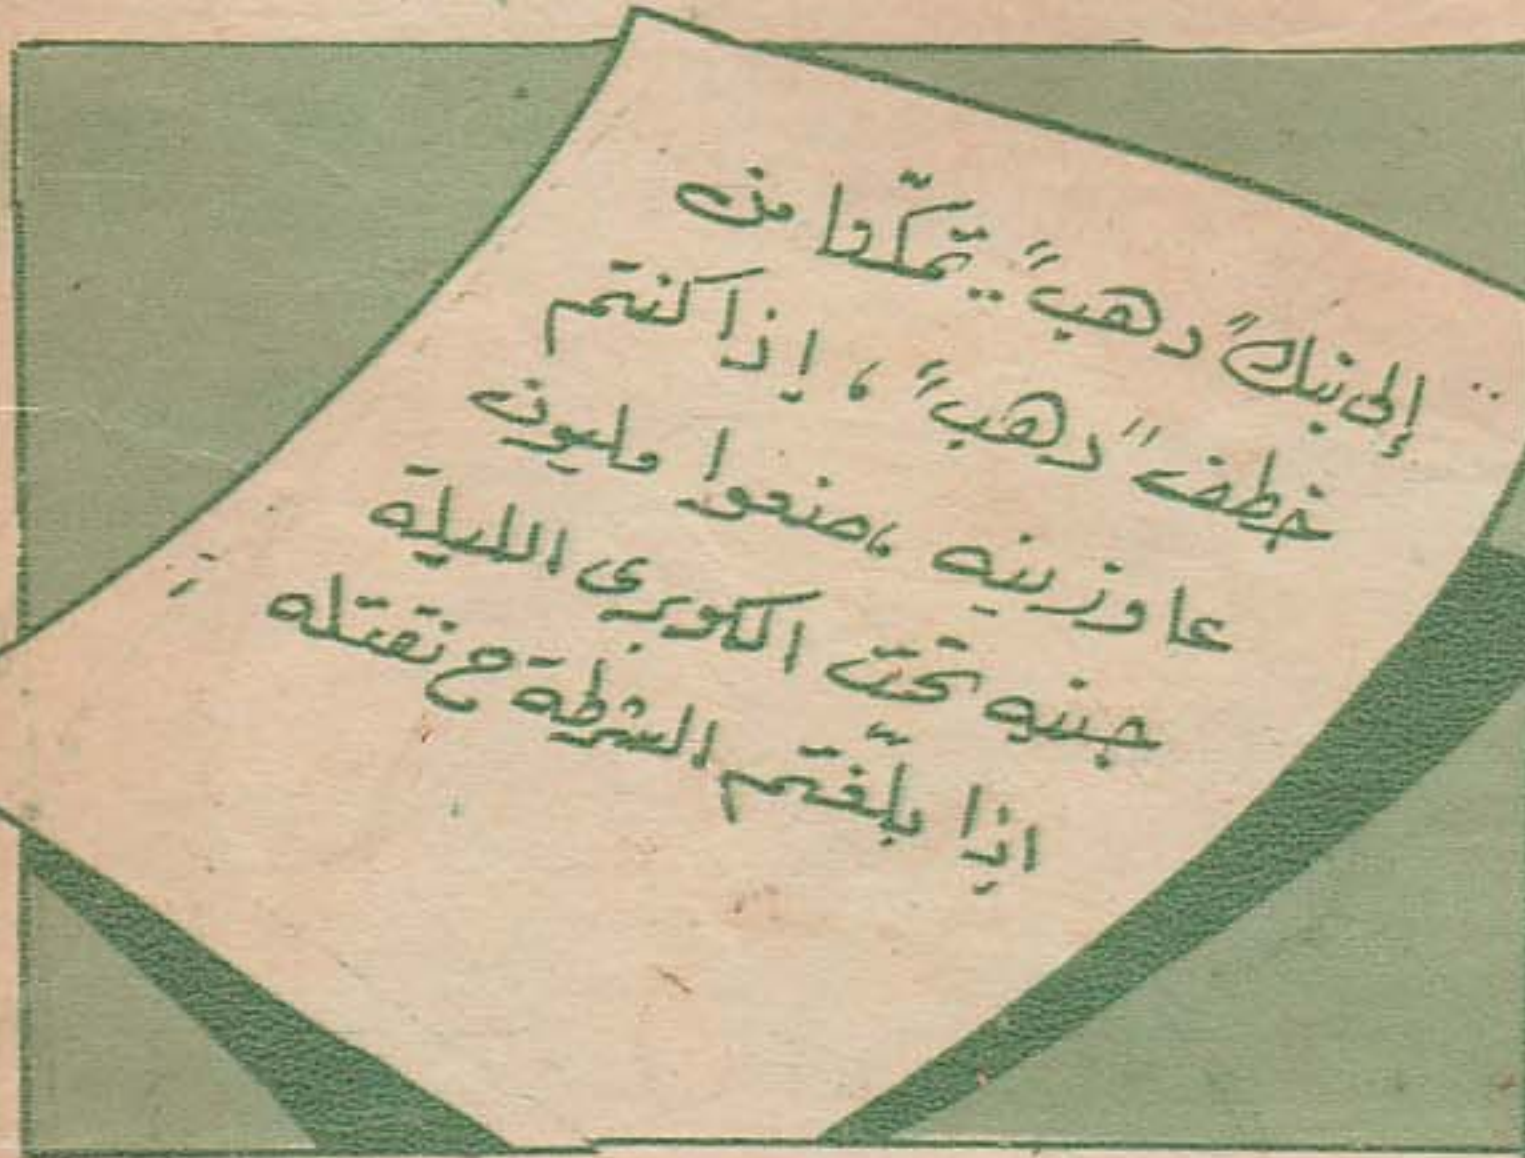 .. إلى بنك "دهب" .. تمكّنا من
خطف "دهب"، إذا كنتم
عاوزينه، ضعوا مليون
جنيه تحت الكوبرى الليلة
إذا بلّغتم الشرطة ح نقتله